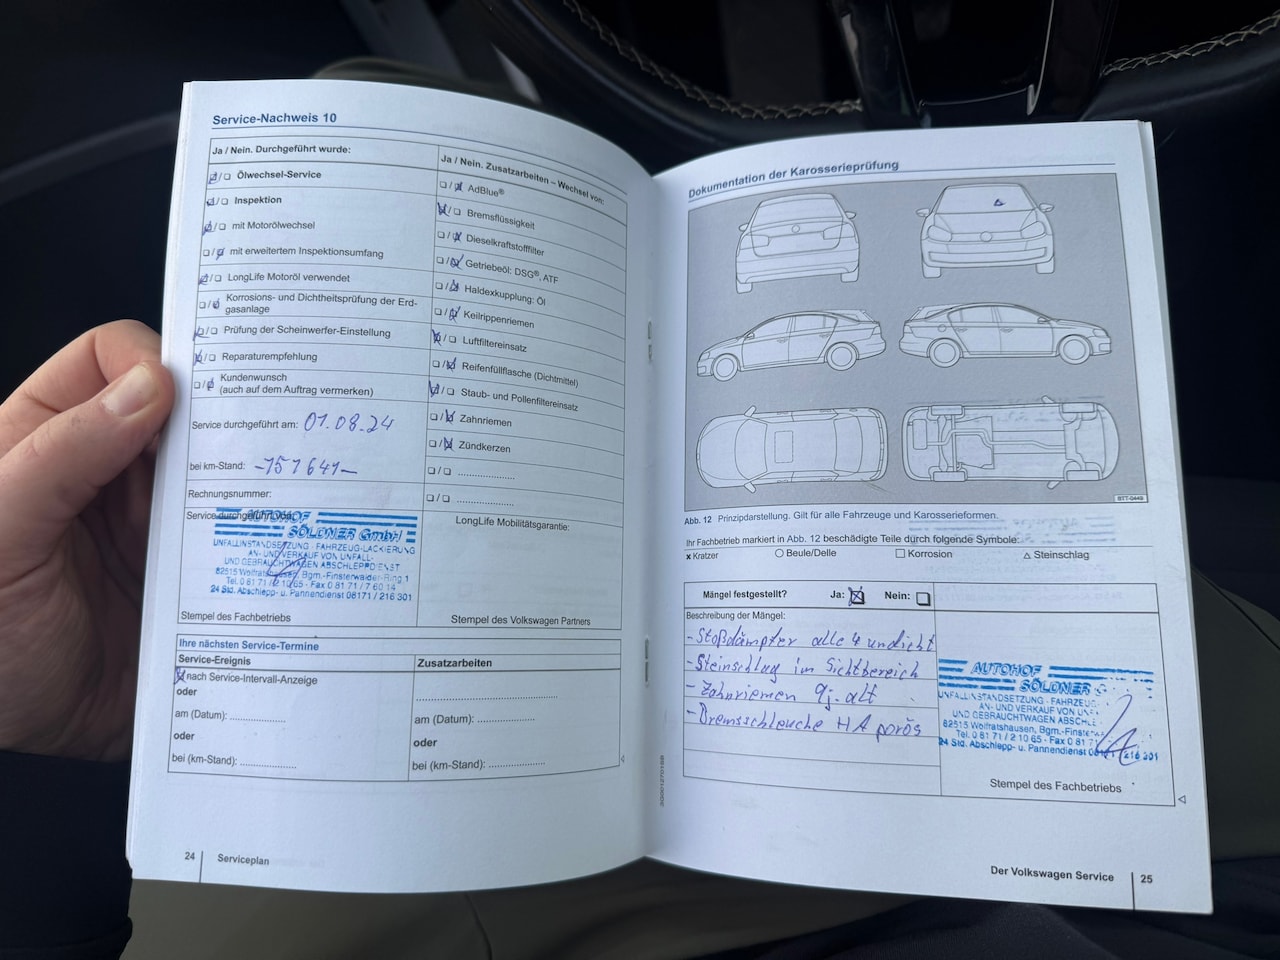 Service-Nachweis 10
Ja / Nein. Durchgeführt wurde:
Ölwechsel-Service
Inspektion
mit Motorölwechsel
mit erweitertem Inspektionsumfang
LongLife Motoröl verwendet
Korrosions- und Dichtheitsprüfung der Erd-
gasanlage
Prüfung der Scheinwerfer-Einstellung
Reparaturempfehlung
Kundenwunsch
(auch auf dem Auftrag vermerken)
Service durchgeführt am: 01.08.24
bei km-Stand: -157641-
Rechnungsnummer:
Service durchgeführt von:
AUTOHOF
SÖLDNER GmbH
UNFALLINSTANDSETZUNG · FAHRZEUG-LACKIERUNG
AN- UND VERKAUF VON UNFALL-
UND GEBRAUCHTWAGEN ABSCHLEPPDIENST
82515 Wolfratshausen, Bgm.-Finsterwalder-Ring 1
Tel. 0 81 71 / 2 10 65 · Fax 0 81 71 / 7 60 14
24 Std. Abschlepp- u. Pannendienst 08171 / 216 301
Stempel des Fachbetriebs
Ja / Nein. Zusatzarbeiten – Wechsel von:
AdBlue®
Bremsflüssigkeit
Dieselkraftstofffilter
Getriebeöl: DSG®, ATF
Haldexkupplung: Öl
Keilrippenriemen
Luftfiltereinsatz
Reifenfüllflasche (Dichtmittel)
Staub- und Pollenfiltereinsatz
Zahnriemen
Zündkerzen
LongLife Mobilitätsgarantie:
Stempel des Volkswagen Partners
Ihre nächsten Service-Termine
Service-Ereignis
nach Service-Intervall-Anzeige
oder
am (Datum):
oder
bei (km-Stand):
Zusatzarbeiten
am (Datum):
oder
bei (km-Stand):
24 Serviceplan
Dokumentation der Karosserieprüfung
BTT-0449
Abb. 12 Prinzipdarstellung. Gilt für alle Fahrzeuge und Karosserieformen.
Ihr Fachbetrieb markiert in Abb. 12 beschädigte Teile durch folgende Symbole:
x Kratzer
Beule/Delle
Korrosion
Steinschlag
Mängel festgestellt? Ja: Nein:
Beschreibung der Mängel:
- Stoßdämpfer alle 4 undicht
- Steinschlag im Sichtbereich
- Zahnriemen 9j. alt
- Bremsschleuche HA porös
AUTOHOF
SÖLDNER
UNFALLINSTANDSETZUNG · FAHRZEUG-
AN- UND VERKAUF VON
UND GEBRAUCHTWAGEN
82515 Wolfratshausen,
Tel. 0 81 71 / 2 10 65 · Fax 0 81 71
24 Std. Abschlepp- u. Pannendienst 216 301
Stempel des Fachbetriebs
Der Volkswagen Service 25